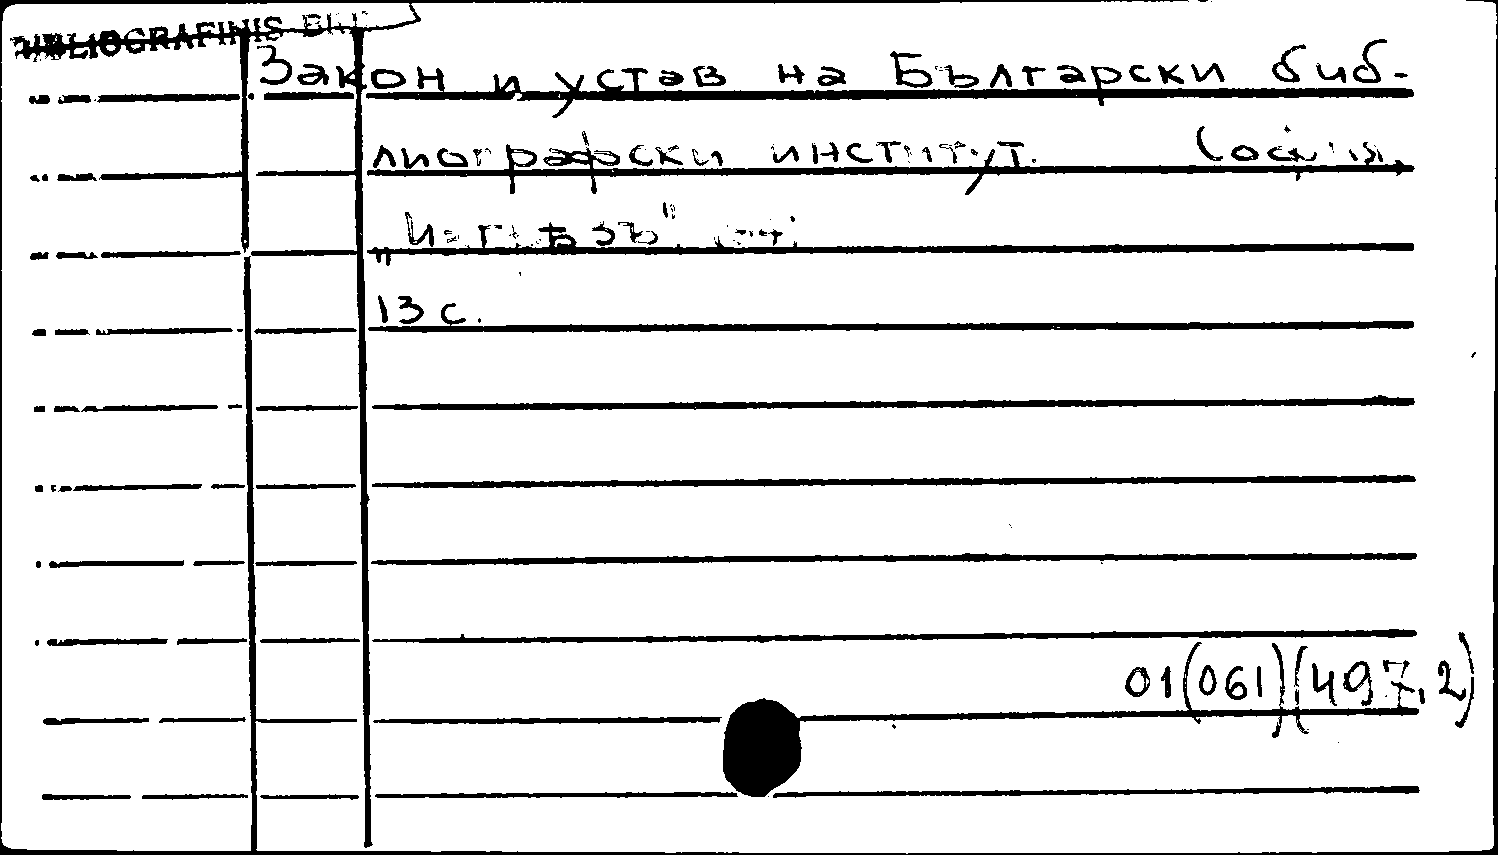 BIBLIOGRAFINIS
Закон и устав на Български биб-
лиографски институт. София,
13 с.
01(061)(497.2)